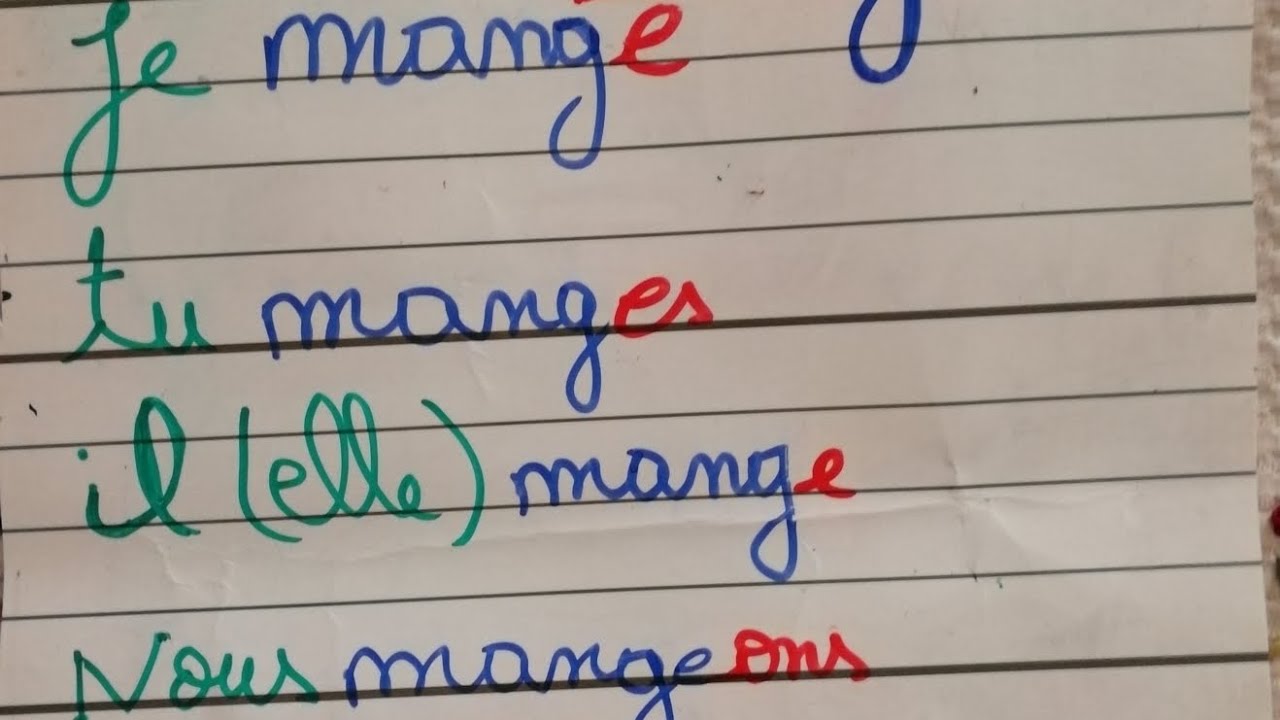 Je mange
tu manges
il (elle) mange
Nous mangeons